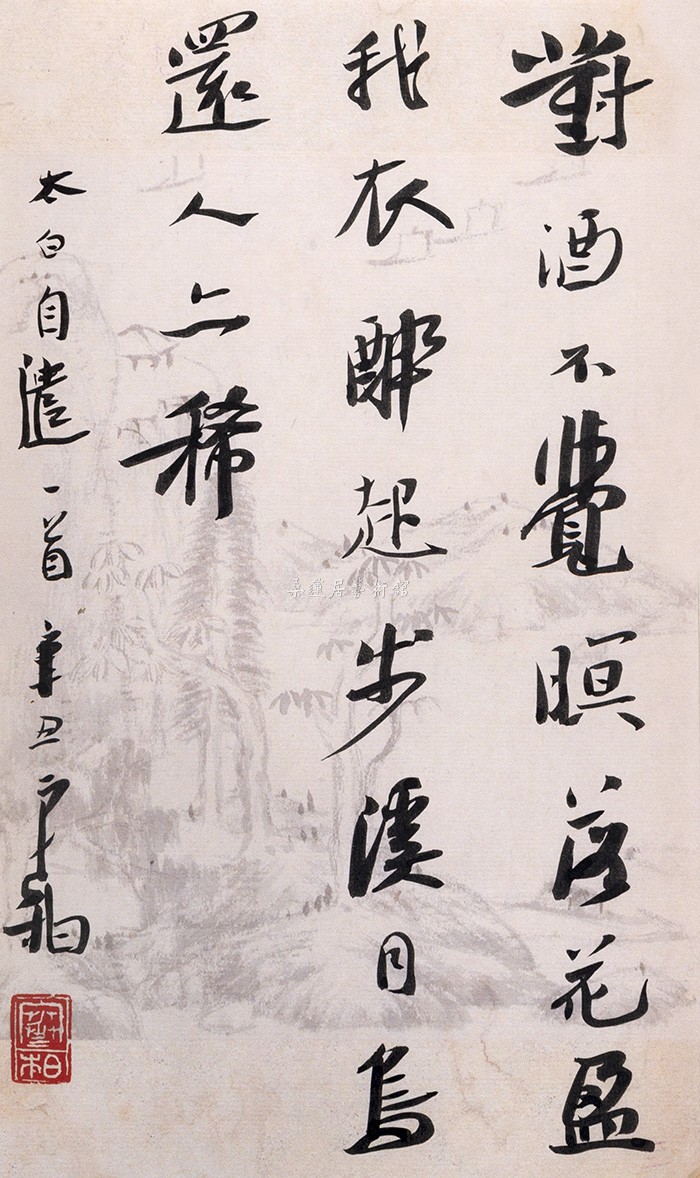 對酒不覺暝落花盈
我衣醉起步溪月鳥
還人亦稀
太白自遣一首 辛丑
居藝術館